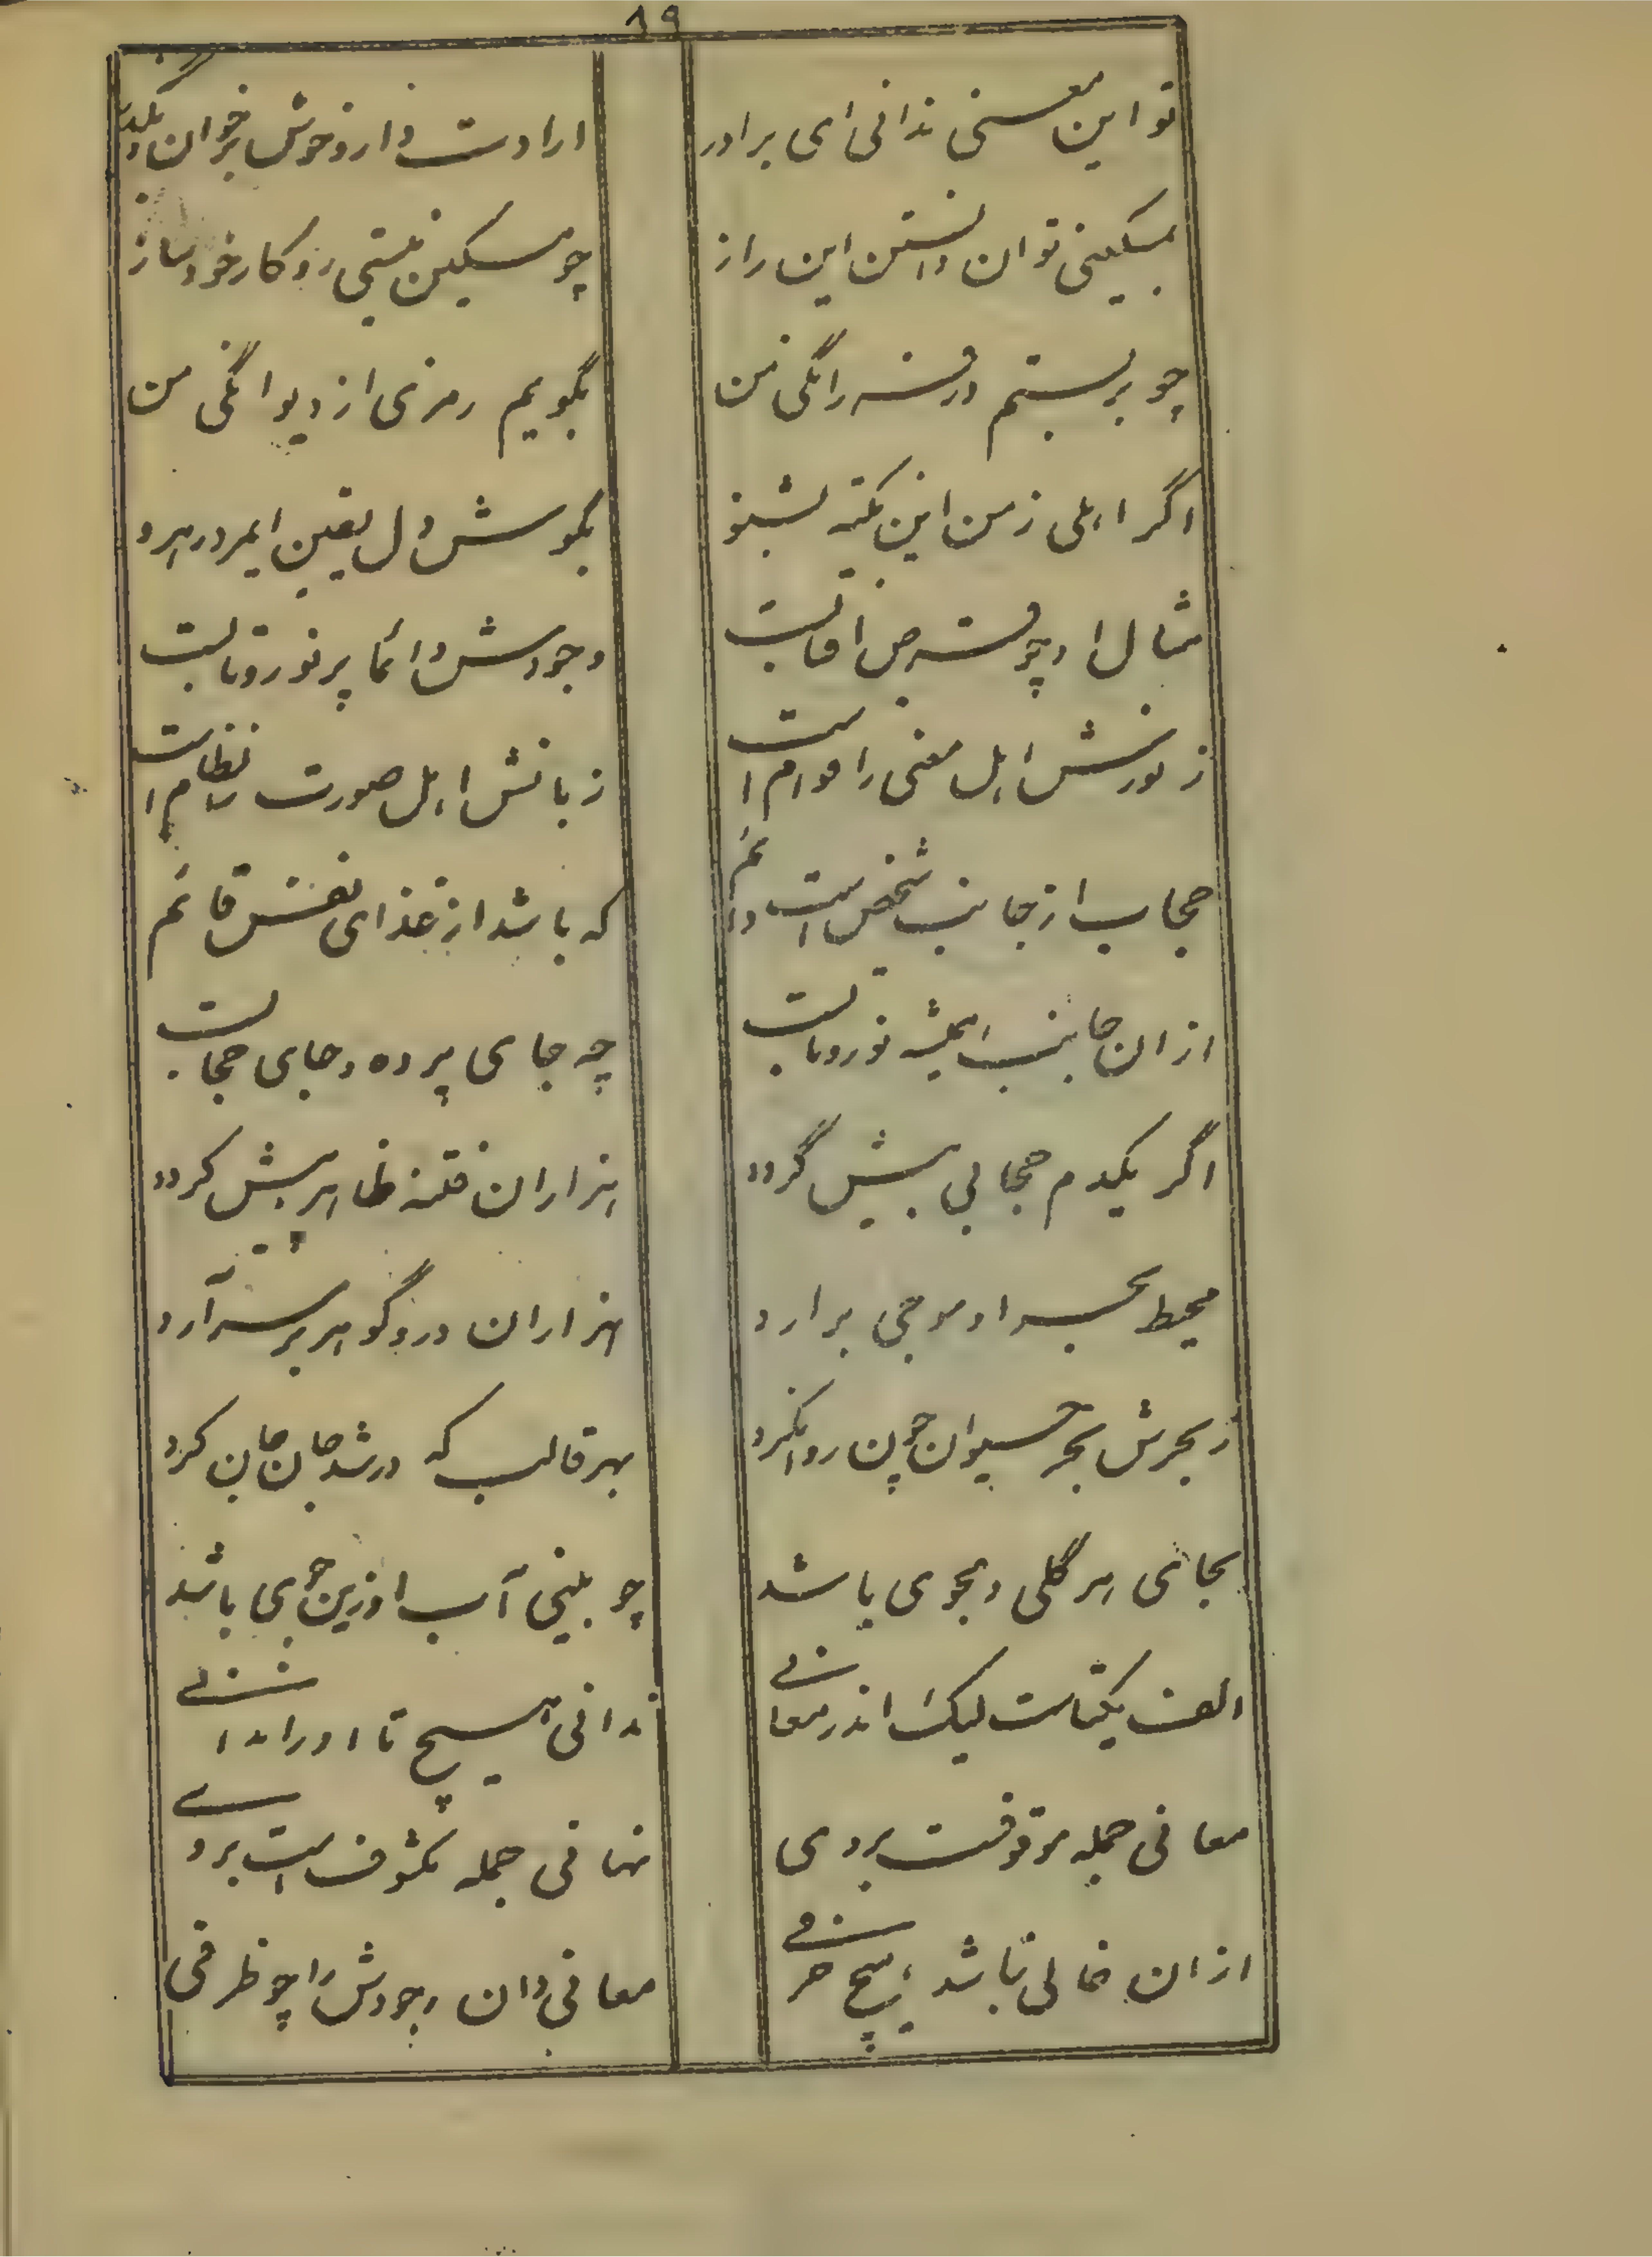 ۱۹
تو این معنی ندانی ای برادر
ارادت دار و خوش برخوان
بمسکینی توان دانستن این راز
چو مسکین نیستی رو کار خود ساز
چو بربستم در فرزانگی من
بگویم رمزی از دیوانگی من
اگر اهلی ز من این نکته بشنو
بگوش دل یقین ایمرد رهرو
مثال او چو قرص آفتابست
وجودش دائما پر نور و تابست
ز نورش اهل معنی را دوام است
زبانش اهل صورت را نظام است
حجاب از جانب شخص است دائم
که باشد از غذای نفس قائم
از ان جانب همیشه نور و تابست
چه جای پرده و جای حجابست
اگر یکدم حجابی پیش گردد
هزاران فتنه ظاهر بیش گردد
محیط بحر او موجی برارد
هزاران در و گوهر بر سر آرد
ز بحرش بحر حیوان چون روانکرد
بهر قالب که در شد جان جان کرد
بجای هر گلی و بجوی باشد
چو بینی آب او زین جوی باشد
الف یکتاست لیک اندر معانی
ندانی هیچ تا او را ندانی
معانی جمله موقوفست بر وی
نهانی جمله مکشوف است بر وی
از ان خالی نباشد هیچ حرفی
معانی دان وجودش را چو ظرفی